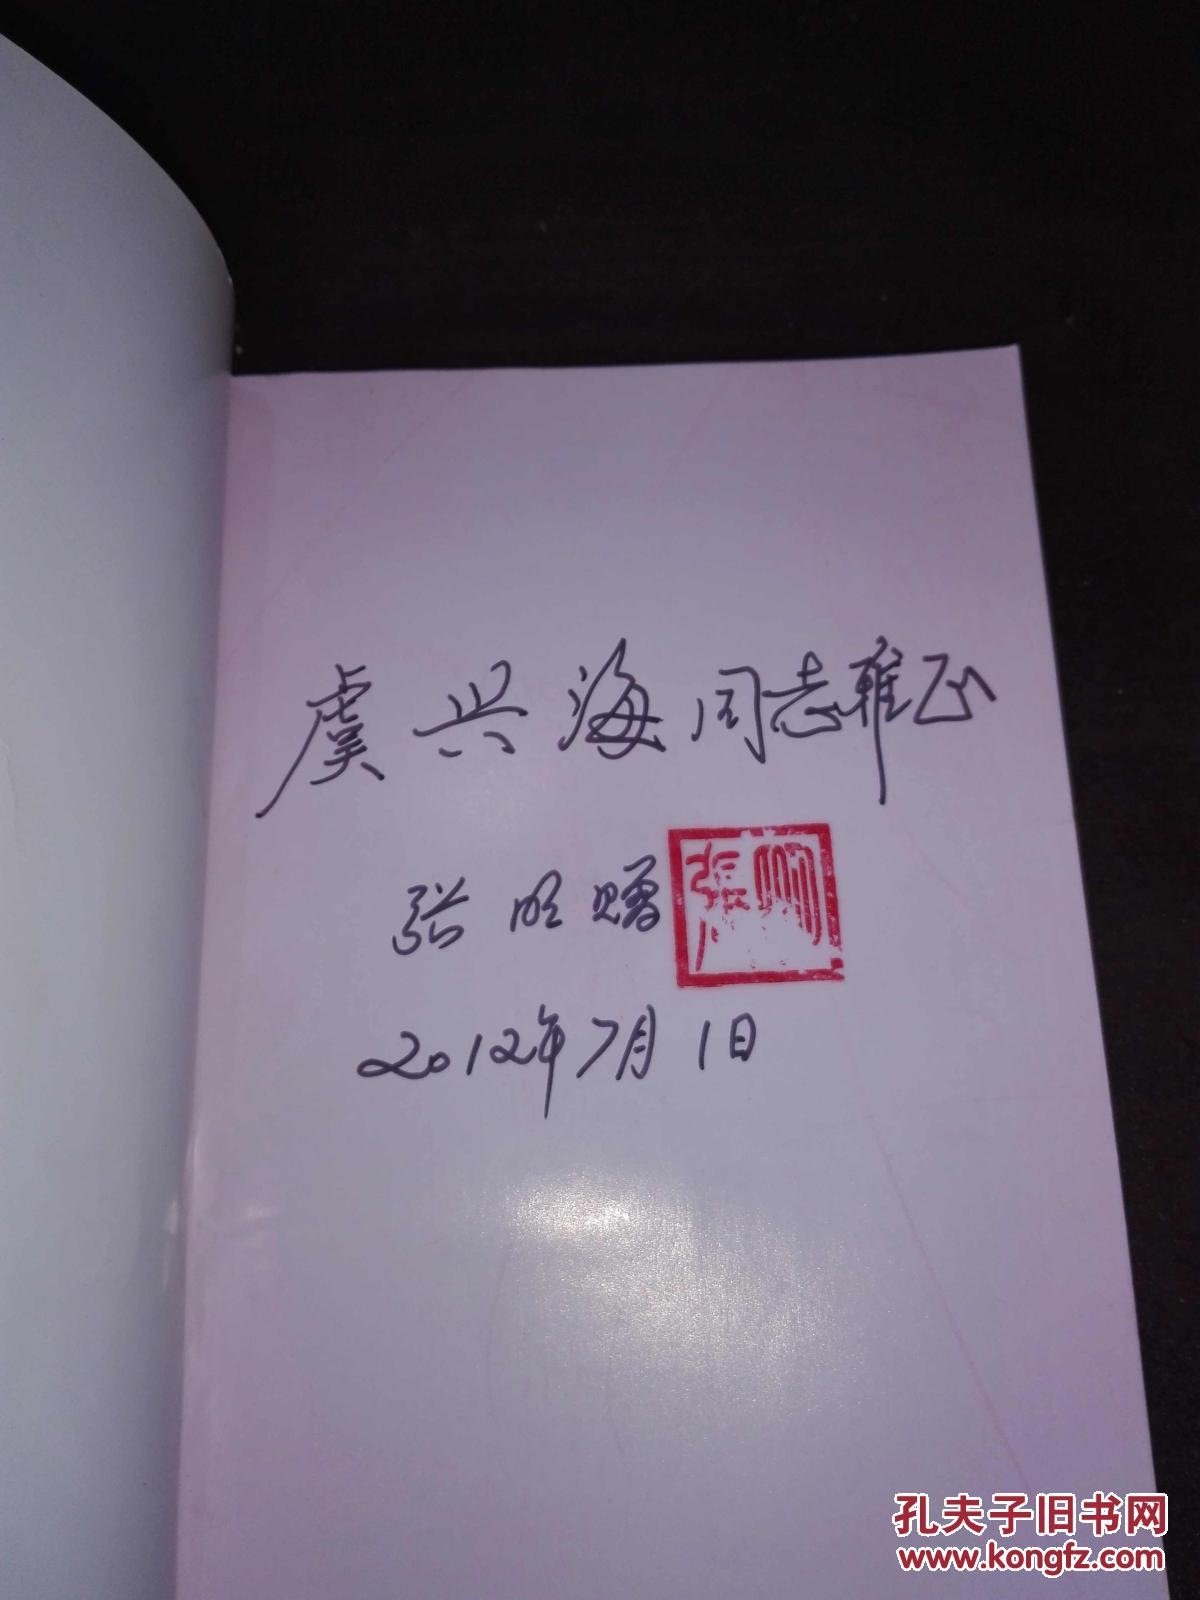 虞兴海同志雅正
张明赠
2012年7月1日
孔夫子旧书网
www.kongfz.com